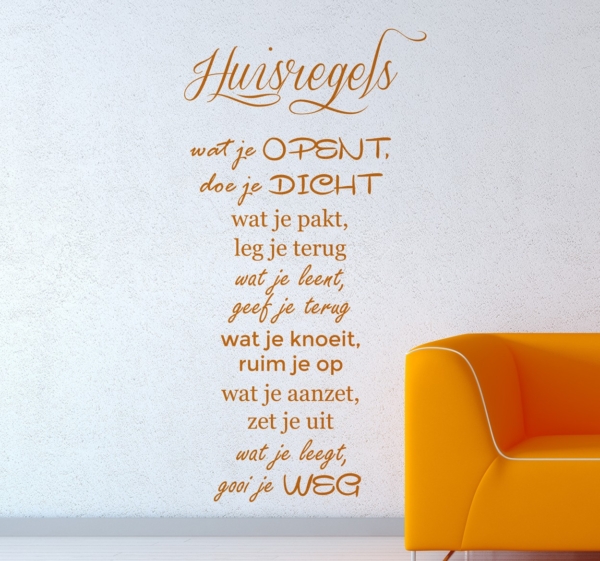 Huisregels
wat je OPENT,
doe je DICHT
wat je pakt,
leg je terug
wat je leent,
geef je terug
wat je knoeit,
ruim je op
wat je aanzet,
zet je uit
wat je leegt,
gooi je WEG